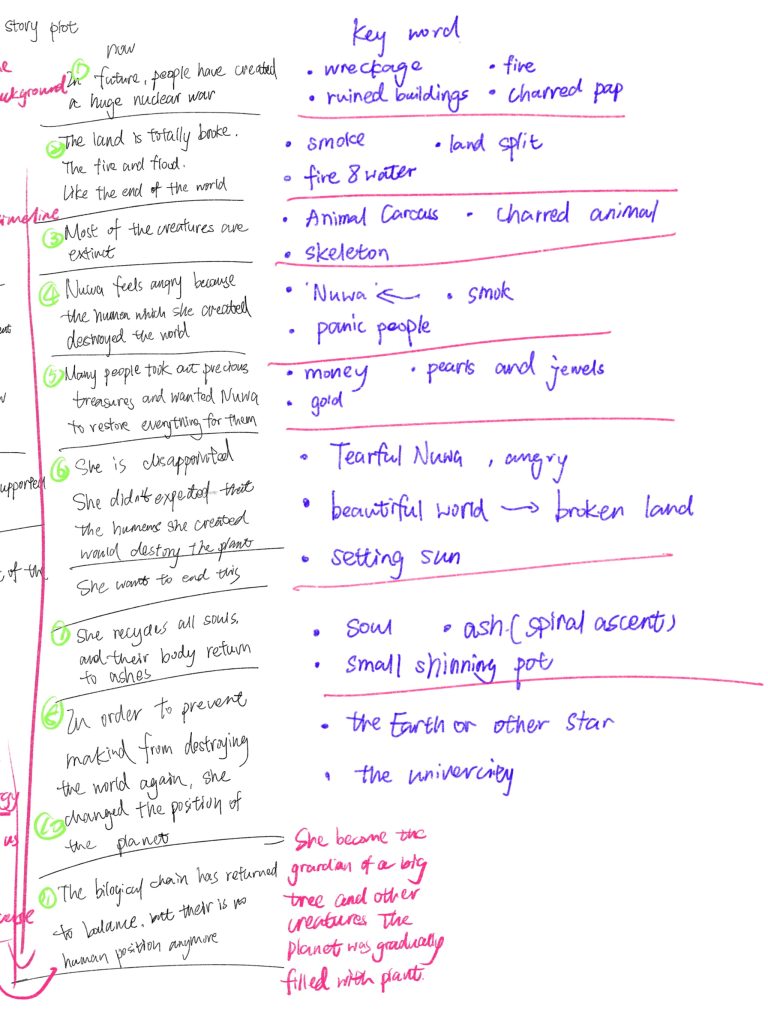 story plot
Key word
now
① In future, people have created
a huge nuclear war
• wreckage • fire
• ruined buildings • charred pap
② The land is totally broke.
The fire and flood.
Like the end of the world
• smoke • land split
• fire & water
timeline
③ Most of the creatures are
extinct
• Animal Carcass • charred animal
• skeleton
④ Nuwa feels angry because
the human which she created
destroyed the world
• 'Nuwa' ← • smok
• panic people
⑤ Many people took out precious
treasures and wanted Nuwa
to restore everything for them
• money • pearls and jewels
• gold
⑥ She is disappointed
She didn't expected that
the humens she created
would destony the plant
She wants to end this
• Tearful Nuwa, angry
• beautiful world → broken land
• setting sun
upported
t of the
She recycles all souls,
and their body return
to ashes
• soul • ash (spiral ascent)
• small shinning pot
In order to prevent
makind from destroying
the world again, she
changed the position of
the planet
• the Earth or other star
• the univercity
gy
us
The bilogical chain has returned
to balance, but their is no
human position anymore
She become the
grardian of a big
tree and other
creatures The
planet was gradually
filled with plant.